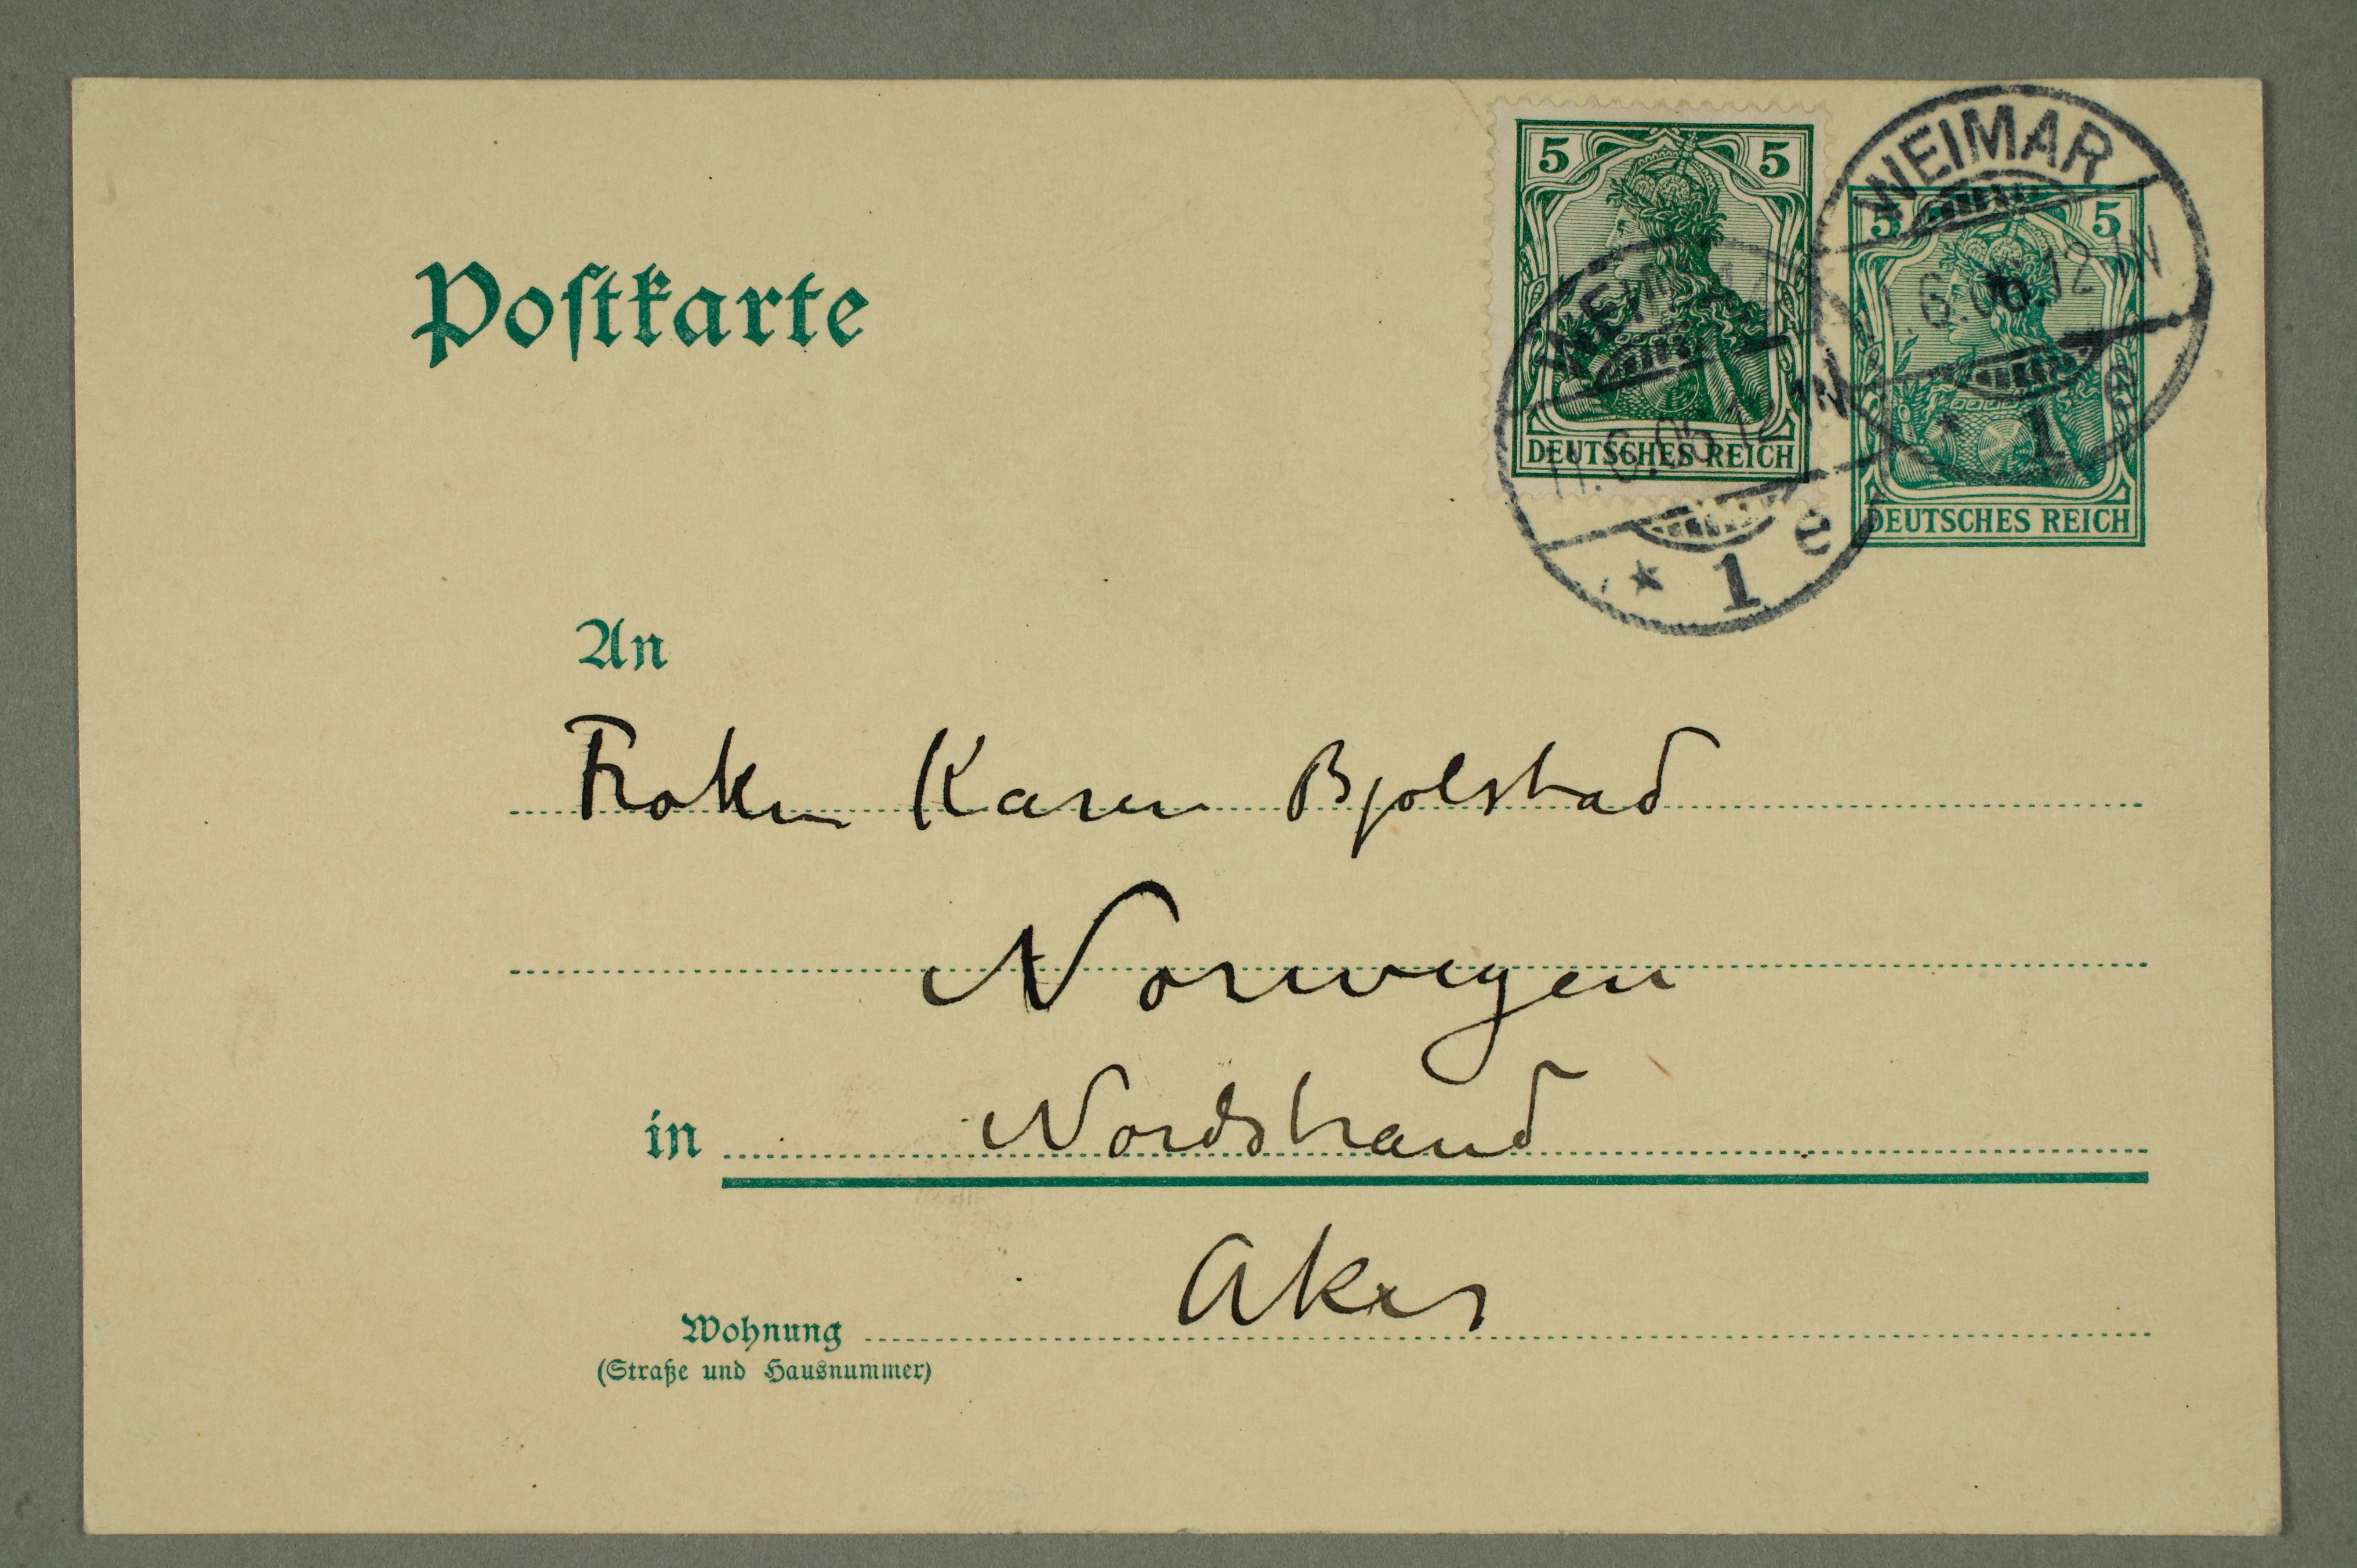 Postkarte
5 5
DEUTSCHES REICH
5 5
DEUTSCHES REICH
WEIMAR
11.6.06.12-1N
* 1 e
WEIMAR
11.6.06.12-1N
* 1 e
An
Frøken Karen Bjølstad
Norwegen
in Nordstrand
Aker
Wohnung
(Straße und Hausnummer)